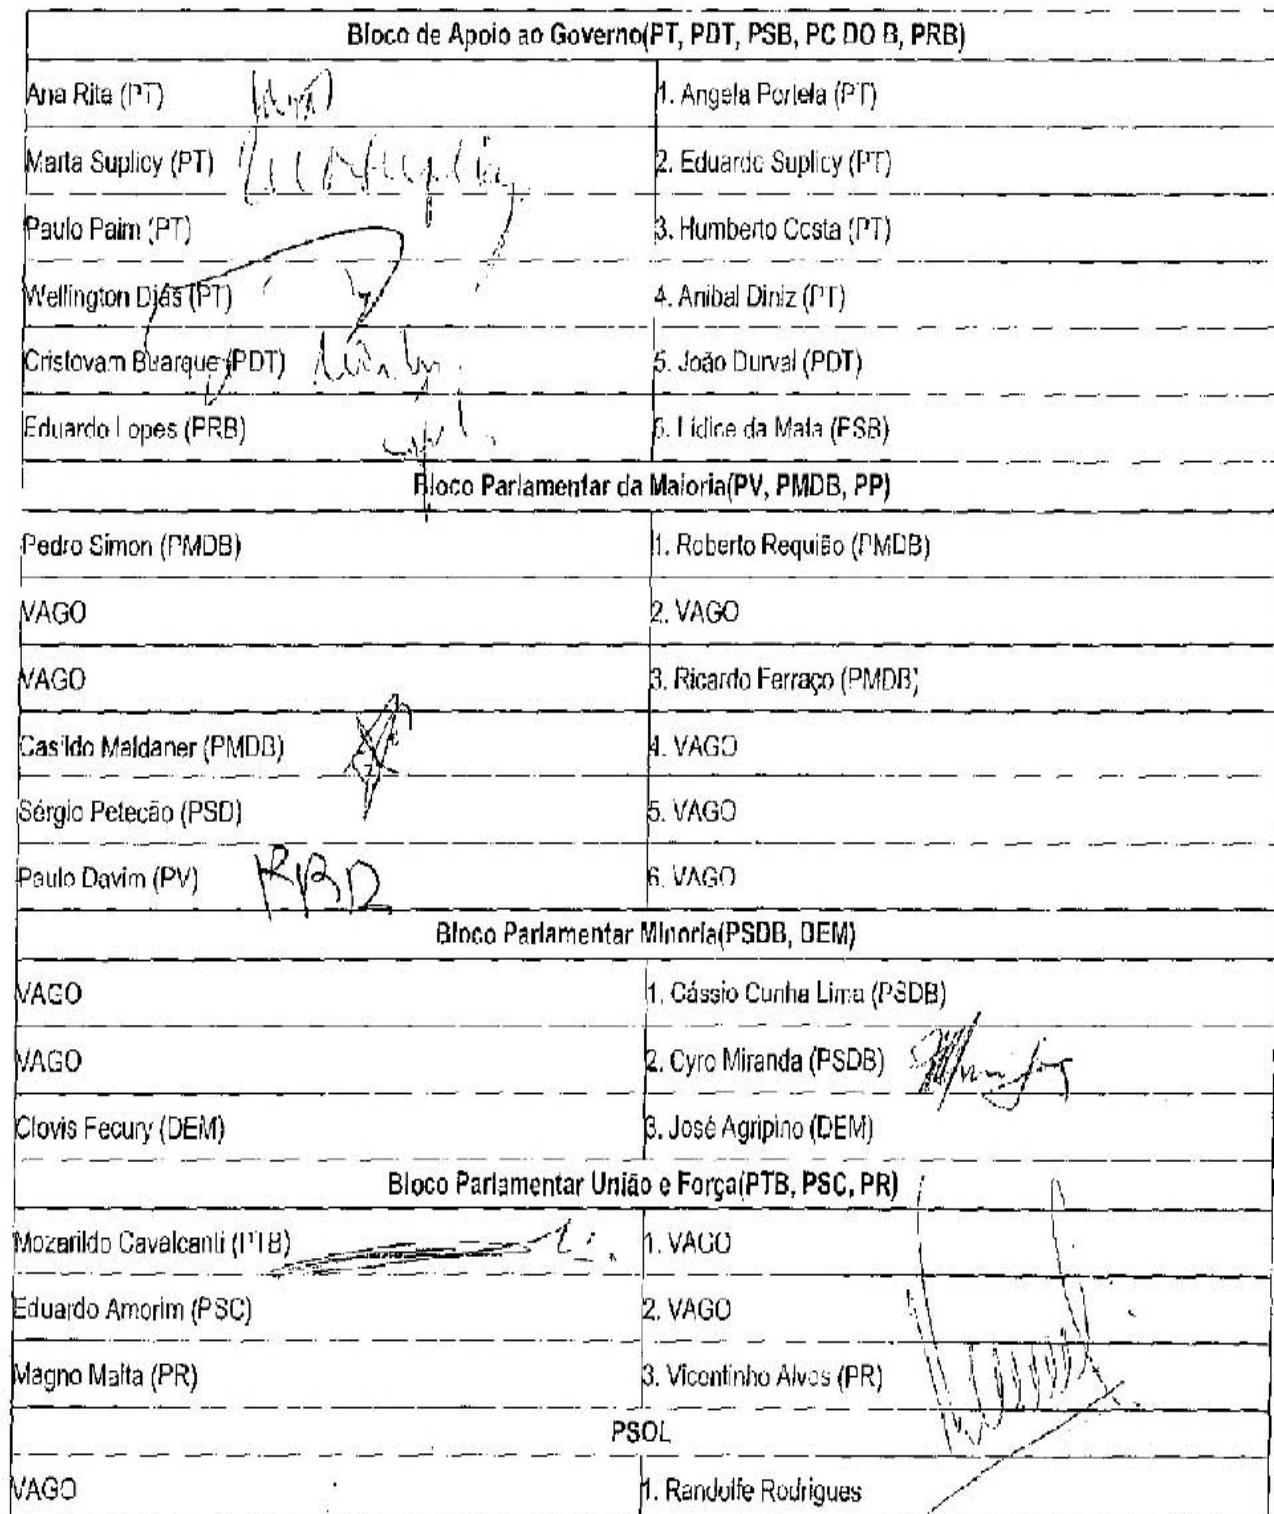 Bloco de Apoio ao Governo(PT, PDT, PSB, PC DO B, PRB)
Ana Rita (PT) 1. Angela Portela (PT)
Marta Suplicy (PT) 2. Eduardo Suplicy (PT)
Paulo Paim (PT) 3. Humberto Costa (PT)
Wellington Dias (PT) 4. Anibal Diniz (PT)
Cristovam Buarque (PDT) 5. João Durval (PDT)
Eduardo Lopes (PRB) 6. Lídice da Mata (PSB)
Bloco Parlamentar da Maioria(PV, PMDB, PP)
Pedro Simon (PMDB) 1. Roberto Requião (PMDB)
VAGO 2. VAGO
VAGO 3. Ricardo Ferraço (PMDB)
Casildo Maldaner (PMDB) 4. VAGO
Sérgio Petecão (PSD) 5. VAGO
Paulo Davim (PV) 6. VAGO
Bloco Parlamentar Minoria(PSDB, DEM)
VAGO 1. Cássio Cunha Lima (PSDB)
VAGO 2. Cyro Miranda (PSDB)
Clovis Fecury (DEM) 3. José Agripino (DEM)
Bloco Parlamentar União e Força(PTB, PSC, PR)
Mozarildo Cavalcanti (PTB) 1. VAGO
Eduardo Amorim (PSC) 2. VAGO
Magno Malta (PR) 3. Vicentinho Alves (PR)
PSOL
VAGO 1. Randolfe Rodrigues